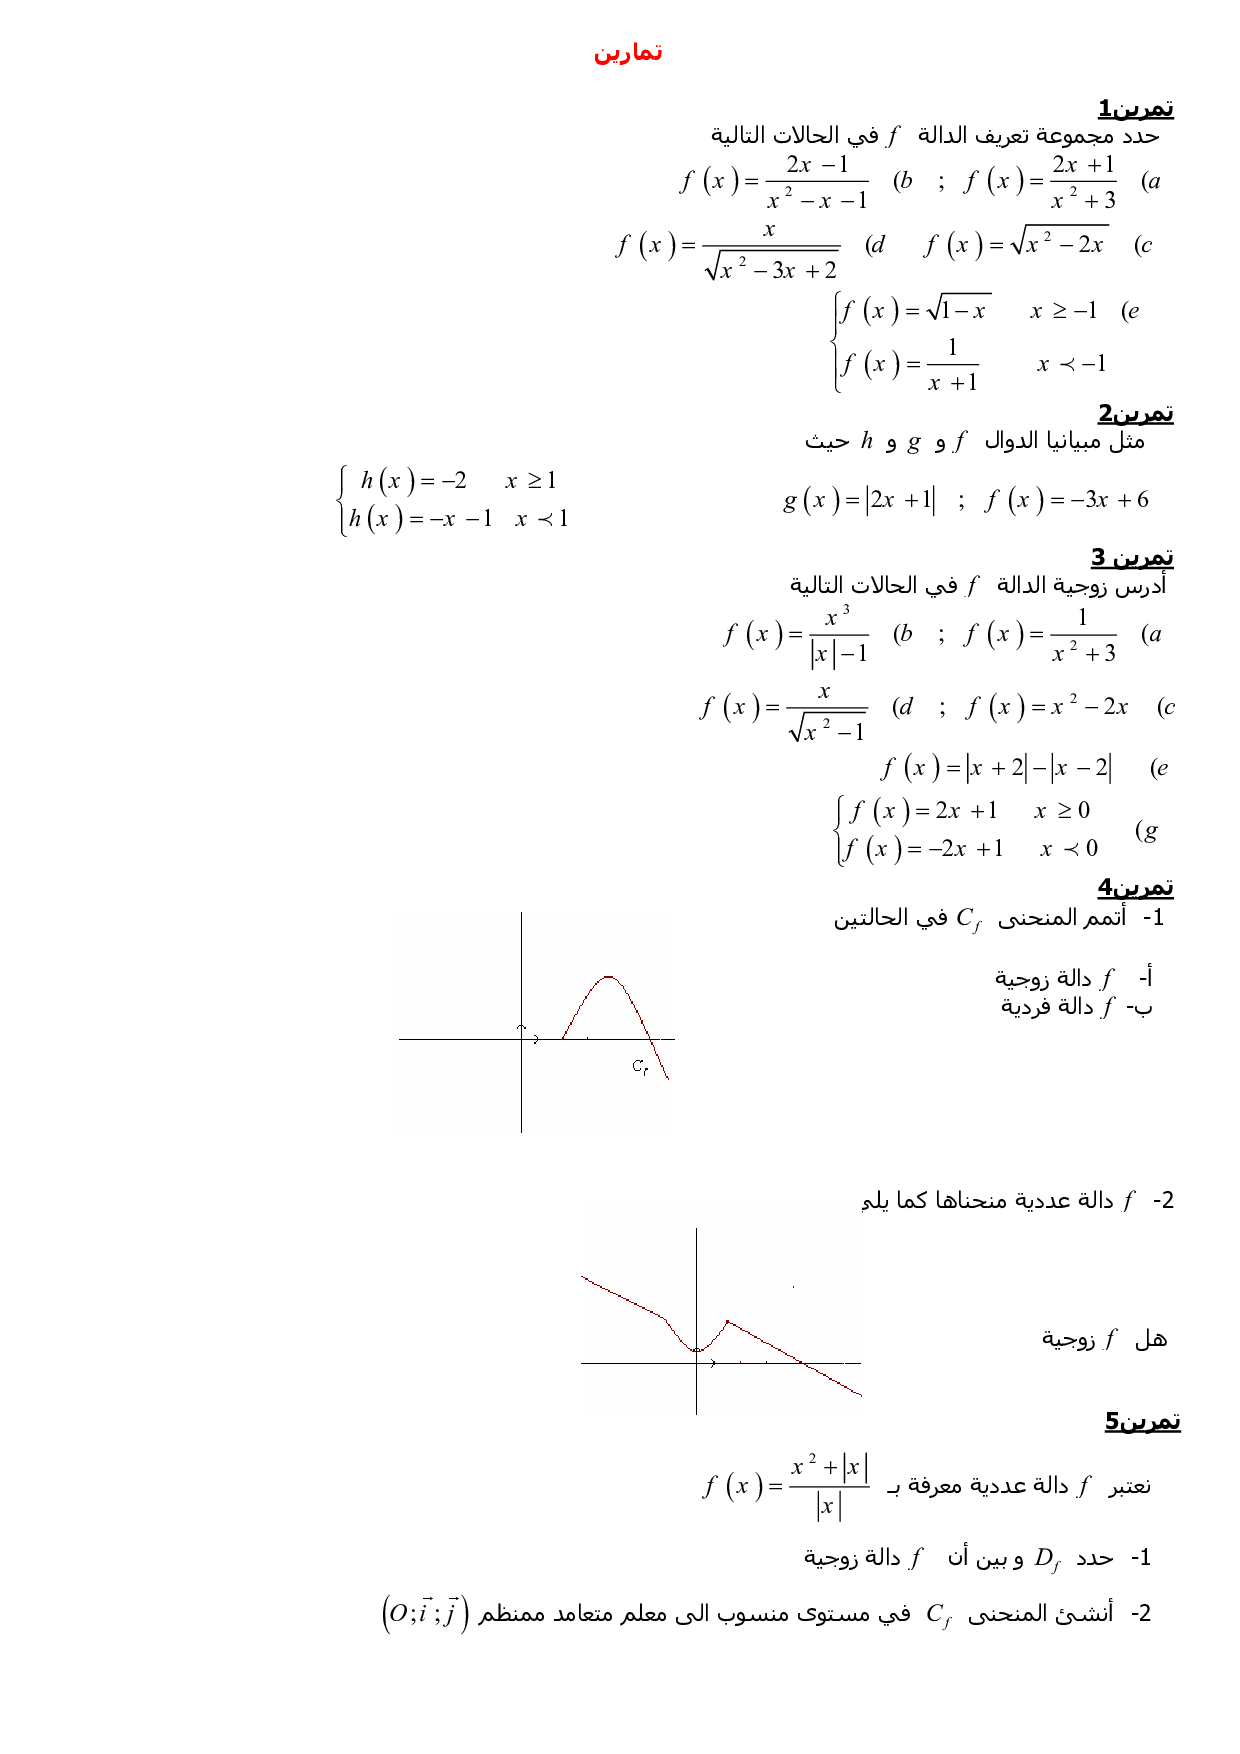 تمارين
تمرين1
حدد مجموعة تعريف الدالة f في الحالات التالية
(a f(x) = \frac{2x+1}{x^2+3} ; (b f(x) = \frac{2x-1}{x^2-x-1}
(c f(x) = \sqrt{x^2-2x} (d f(x) = \frac{x}{\sqrt{x^2-3x+2}}
(e \begin{cases} f(x) = \sqrt{1-x} & x \geq -1 \\ f(x) = \frac{1}{x+1} & x \prec -1 \end{cases}
تمرين2
مثل مبيانيا الدوال f و g و h حيث
f(x) = -3x+6 ; g(x) = |2x+1| \begin{cases} h(x) = -2 & x \geq 1 \\ h(x) = -x-1 & x \prec 1 \end{cases}
تمرين 3
أدرس زوجية الدالة f في الحالات التالية
(a f(x) = \frac{1}{x^2+3} ; (b f(x) = \frac{x^3}{|x|-1}
(c f(x) = x^2-2x ; (d f(x) = \frac{x}{\sqrt{x^2-1}}
(e f(x) = |x+2|-|x-2|
(g \begin{cases} f(x) = 2x+1 & x \geq 0 \\ f(x) = -2x+1 & x \prec 0 \end{cases}
تمرين4
1- أتمم المنحنى C_f في الحالتين
أ- f دالة زوجية
ب- f دالة فردية
C_f
2- f دالة عددية منحناها كما يلي
هل f زوجية
تمرين5
نعتبر f دالة عددية معرفة بـ f(x) = \frac{x^2+|x|}{|x|}
1- حدد D_f و بين أن f دالة زوجية
2- أنشئ المنحنى C_f في مستوى منسوب الى معلم متعامد ممنظم (O;\vec{i};\vec{j})